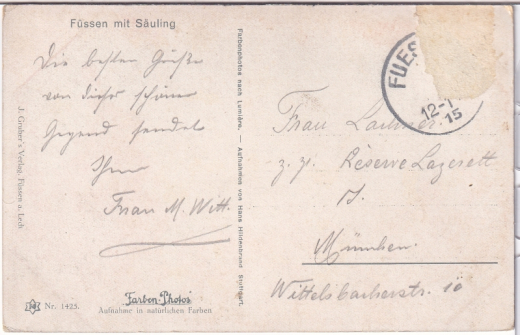 Füssen mit Säuling
Die besten Grüße
von dieser schönen
Gegend sendet
Ihnen
Frau M. Witt.
J. Gruber's Verlag, Füssen a. Lech
Nr. 1425.
Farben-Photos
Aufnahme in natürlichen Farben
Farbenphotos nach Lumière. — Aufnahmen von Hans Hildenbrand Stuttgart.
FUES
12-1
15
Frau
z. Zt. Reserve Lazarett
München.
Wittelsbacherstr. 10